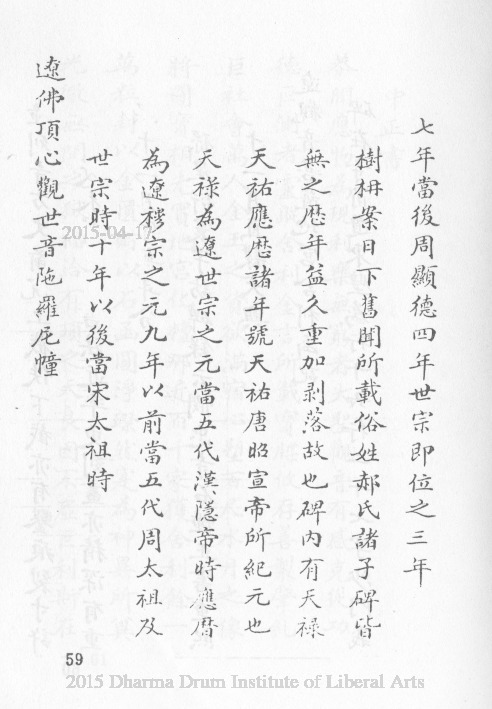 七年當後周顯德四年世宗即位之三年
樹枏案日下舊聞所載俗姓郝氏諸子碑皆
無之歷年益久重加剥落故也碑内有天祿
天祐應曆諸年號天祐唐昭宣帝所紀元也
天祿為遼世宗之元當五代漢隱帝時應曆
為遼穆宗之元九年以前當五代周太祖及
世宗時十年以後當宋太祖時
遼佛頂心觀世音陁羅尼幢
59
2015-04-17
2015 Dharma Drum Institute of Liberal Arts